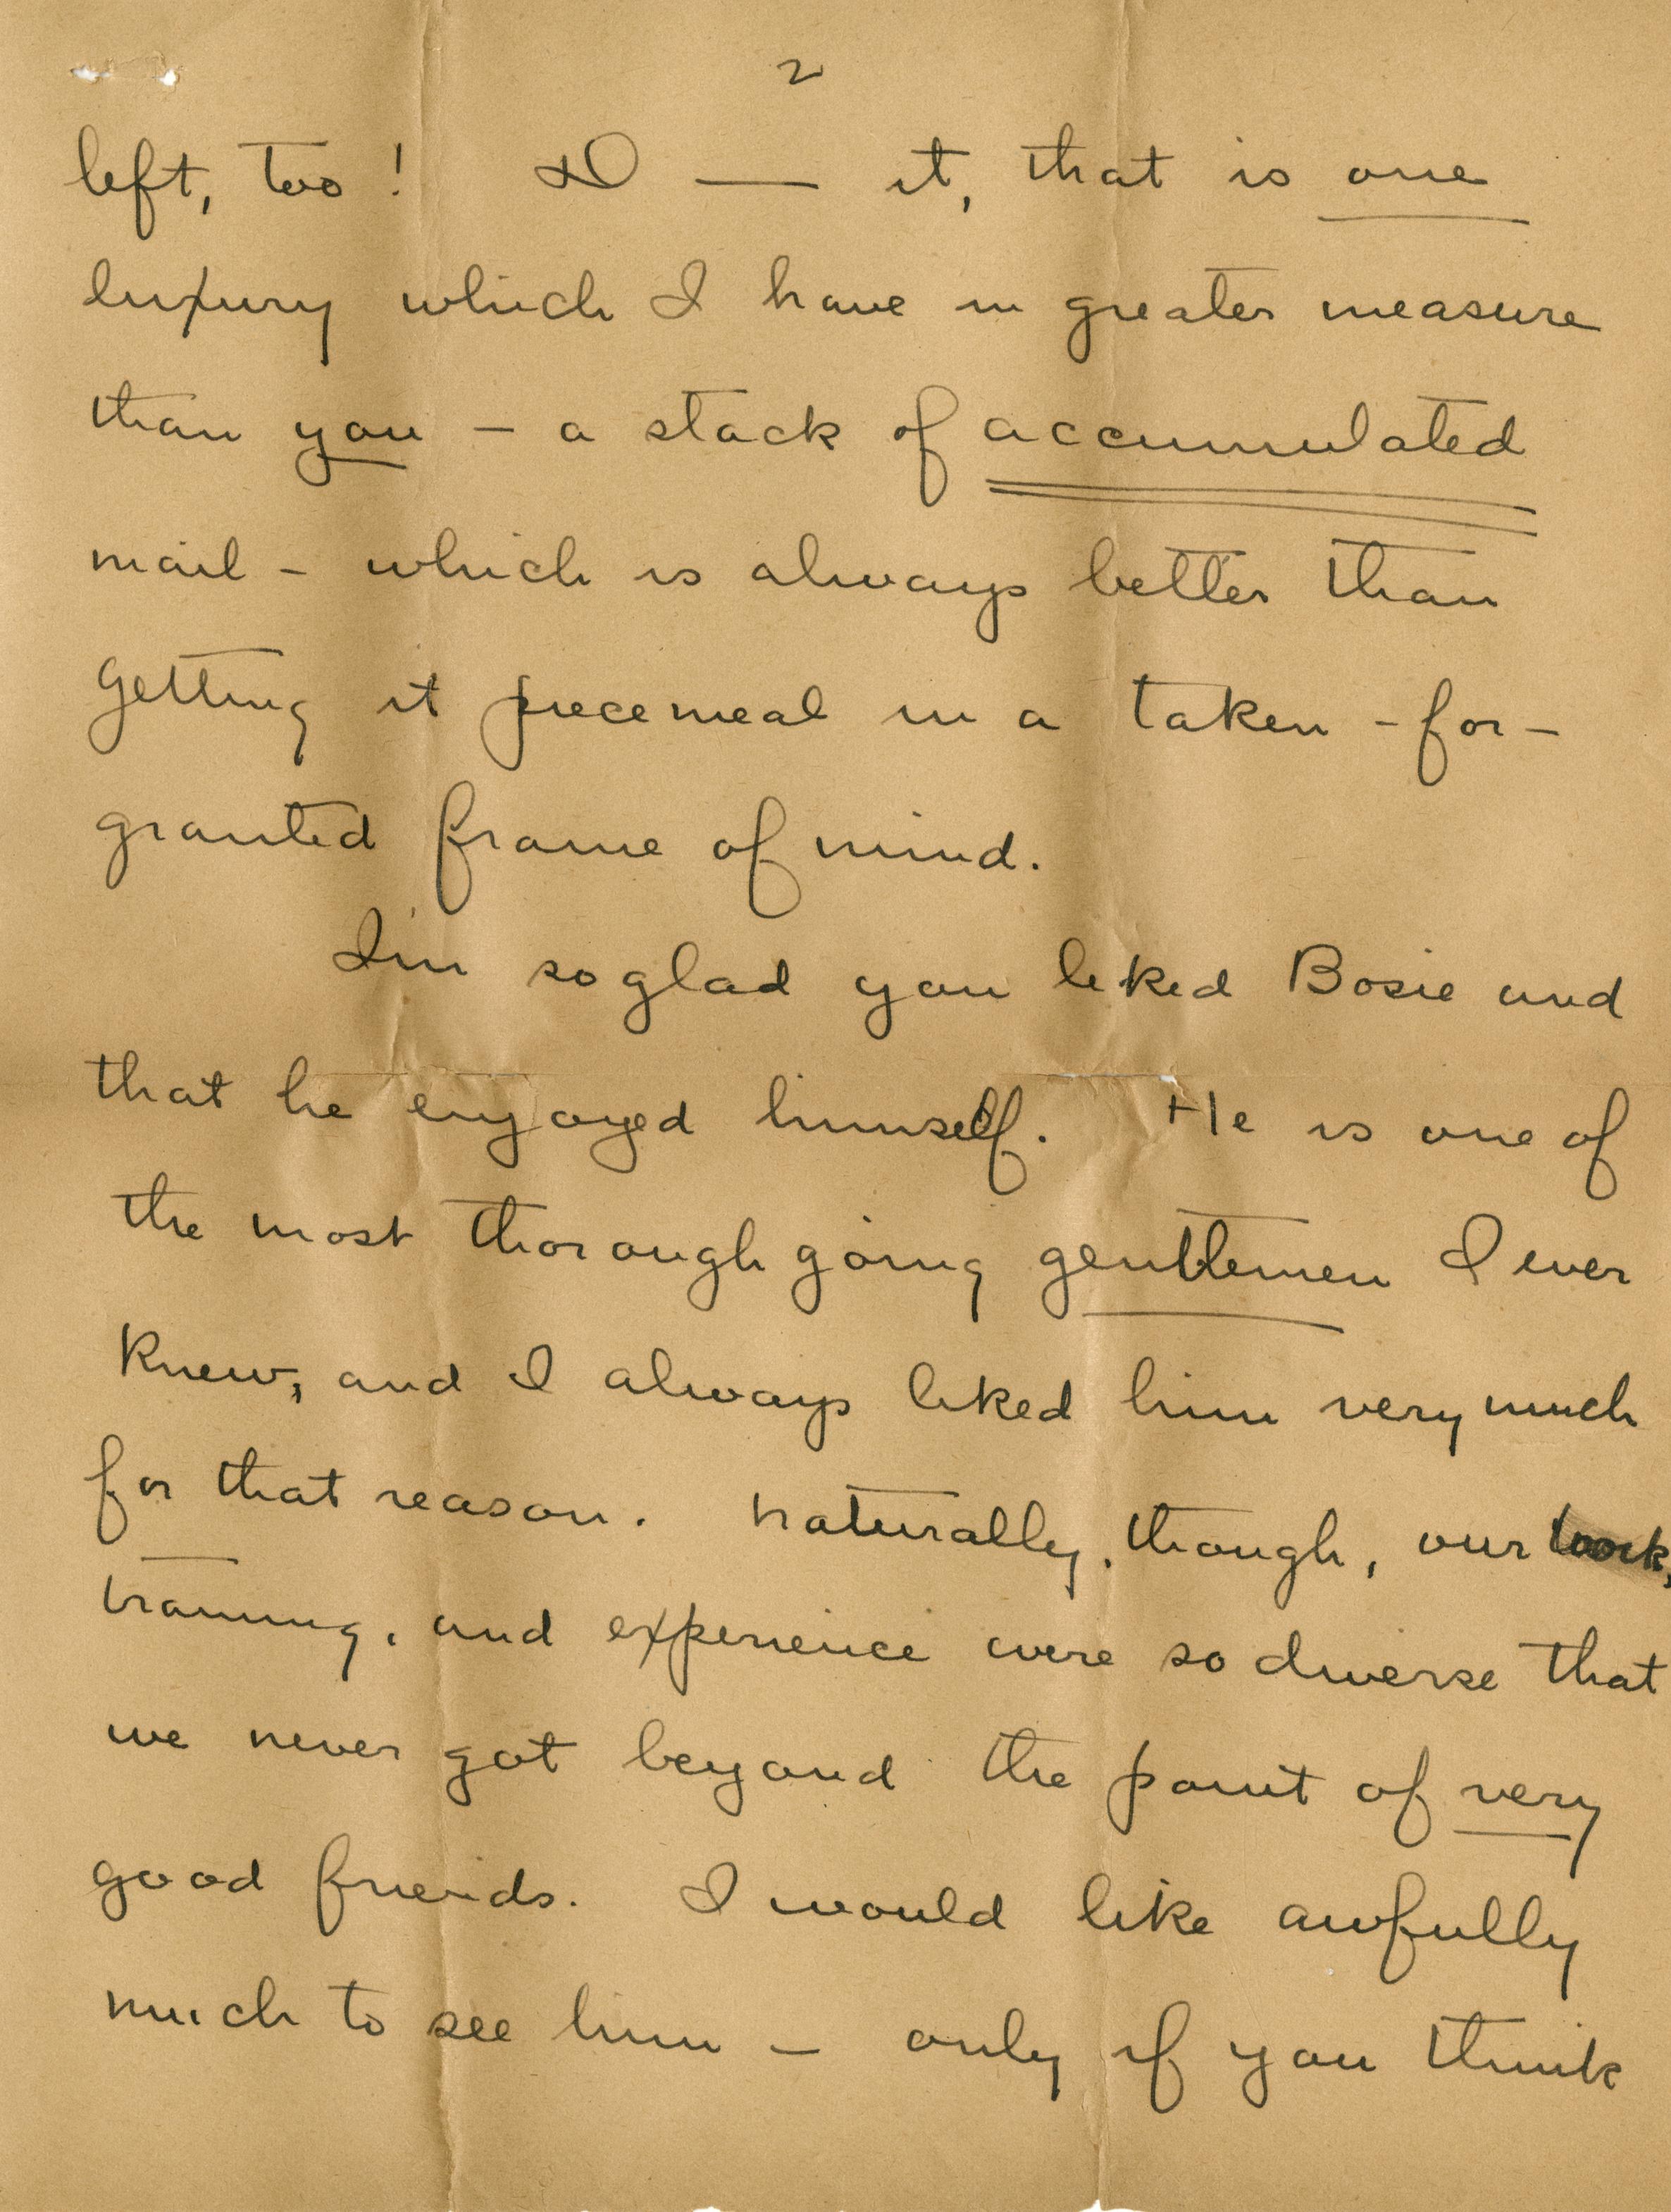 2
left, too! D — it, that is one
luxury which I have in greater measure
than you – a stack of accumulated
mail – which is always better than
getting it piecemeal in a taken-for-
granted frame of mind.
I'm so glad you liked Bosie and
that he enjoyed himself. He is one of
the most thoroughgoing gentlemen I ever
knew, and I always liked him very much
for that reason. Naturally, though, our work,
training, and experience were so diverse that
we never got beyond the point of very
good friends. I would like awfully
much to see him – only if you think